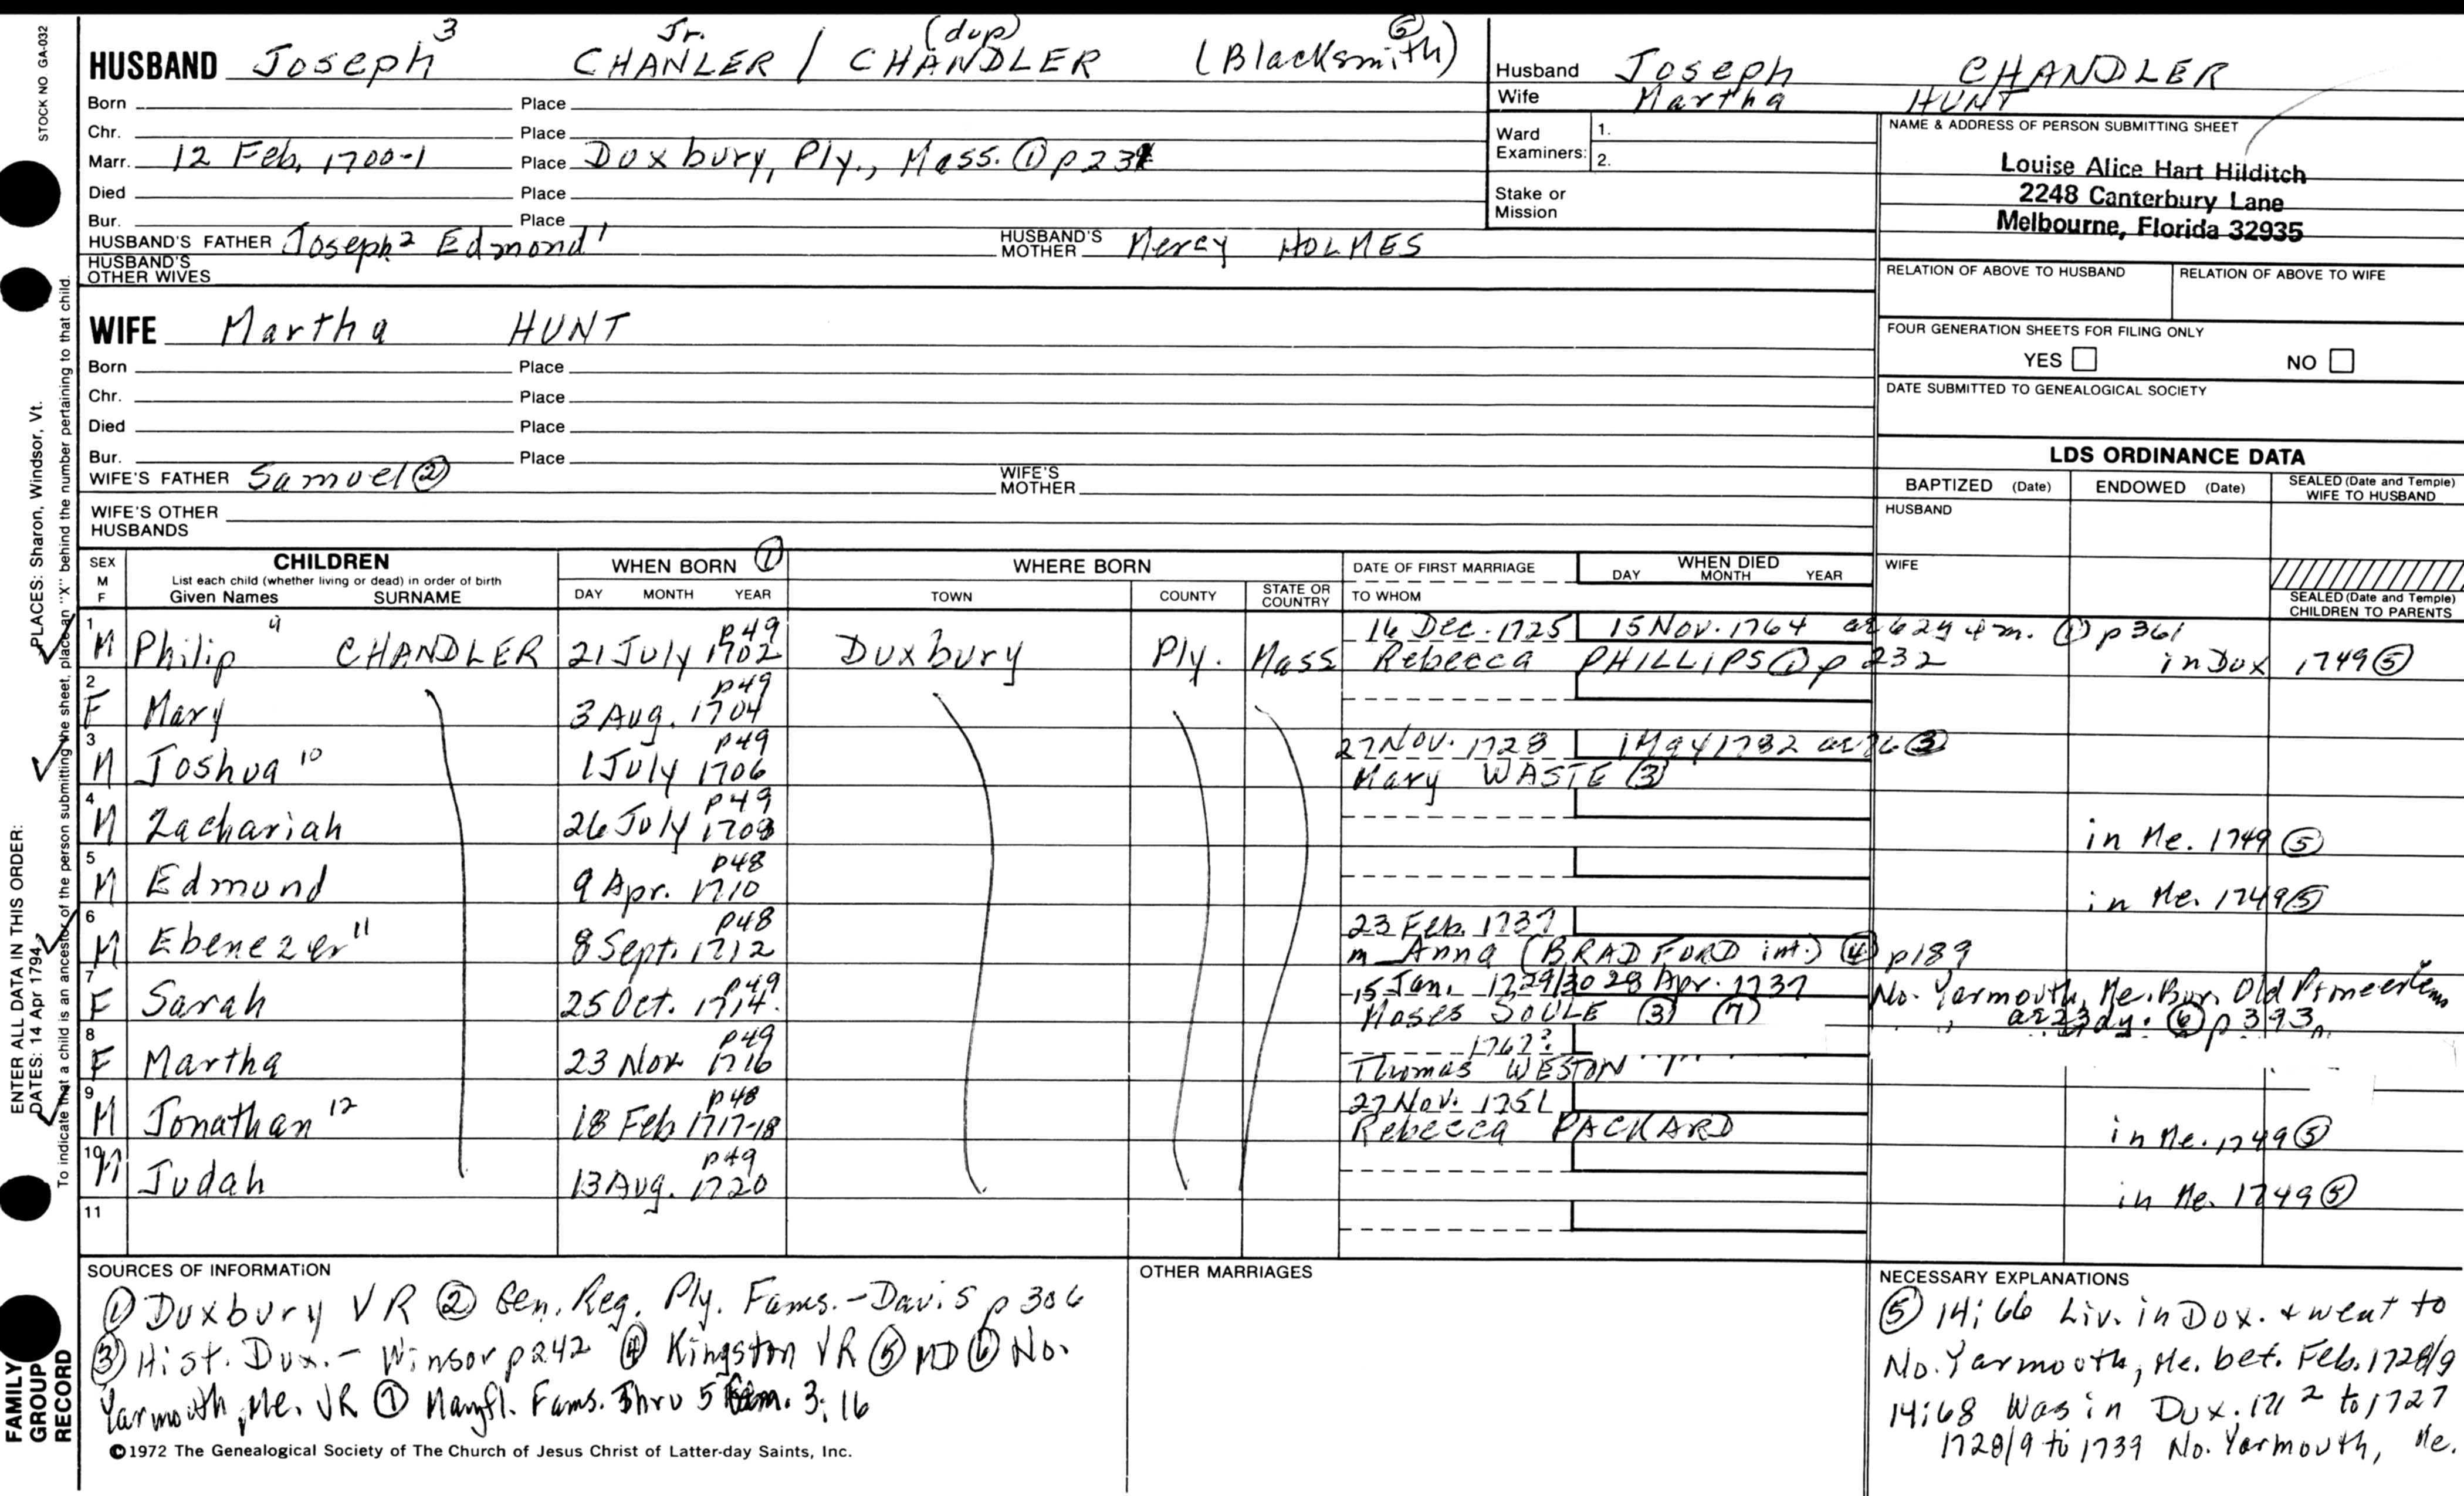 STOCK NO GA-032
HUSBAND Joseph 3 CHANLER Jr. / CHANDLER (dup) (Blacksmith) ⑤
Born Place
Chr. Place
Marr. 12 Feb. 1700-1 Place Duxbury, Ply., Mass. ① p 231
Died Place
Bur. Place
HUSBAND'S FATHER Joseph 2 Edmond 1 HUSBAND'S MOTHER Mercy HOLMES
HUSBAND'S OTHER WIVES
WIFE Martha HUNT
Born Place
Chr. Place
Died Place
Bur. Place
WIFE'S FATHER Samuel ② WIFE'S MOTHER
WIFE'S OTHER HUSBANDS
Husband Joseph CHANDLER
Wife Martha HUNT
Ward Examiners: 1.
2.
Stake or Mission
NAME & ADDRESS OF PERSON SUBMITTING SHEET
Louise Alice Hart Hilditch
2248 Canterbury Lane
Melbourne, Florida 32935
RELATION OF ABOVE TO HUSBAND RELATION OF ABOVE TO WIFE
FOUR GENERATION SHEETS FOR FILING ONLY
YES NO
DATE SUBMITTED TO GENEALOGICAL SOCIETY
LDS ORDINANCE DATA
BAPTIZED (Date) ENDOWED (Date) SEALED (Date and Temple) WIFE TO HUSBAND
HUSBAND
WIFE
SEALED (Date and Temple) CHILDREN TO PARENTS
SEX M F CHILDREN WHEN BORN ① WHERE BORN DATE OF FIRST MARRIAGE WHEN DIED
List each child (whether living or dead) in order of birth
Given Names SURNAME DAY MONTH YEAR TOWN COUNTY STATE OR COUNTRY TO WHOM DAY MONTH YEAR
1 M Philip 4 CHANDLER 21 July 1702 p49 Duxbury Ply. Mass 16 Dec. 1725 15 Nov. 1764 ae 62y 4m. ① p 361
Rebecca PHILLIPS ① p 232 in Dux 1749 ⑤
2 F Mary 3 Aug. 1704 p49
3 M Joshua 10 1 July 1706 p49 27 Nov. 1728 1 May 1782 ae 76 ③
Mary WASTE ③
4 M Zachariah 26 July 1708 p49 in Me. 1749 ⑤
5 M Edmund 9 Apr. 1710 p48 in Me. 1749 ⑤
6 M Ebenezer 11 8 Sept. 1712 p48 23 Feb. 1737
m Anna (BRADFORD int.) ④ p189
7 F Sarah 25 Oct. 1714. p49 15 Jan. 1729/30 28 Apr. 1737 No. Yarmouth, Me. Bur. Old
Moses SOULE ③ ⑦ ⑥ p 393
8 F Martha 23 Nov 1716 p49 1767?
Thomas WESTON
9 M Jonathan 12 18 Feb 1717-18 p48 27 Nov. 1751
Rebecca PACKARD in Me. 1749 ⑤
10 M Judah 13 Aug. 1720 p49 in Me. 1749 ⑤
11
SOURCES OF INFORMATION
① Duxbury VR ② Gen. Reg. Ply. Fams. - Davis p 306
③ Hist. Dux. - Winsor p242 ④ Kingston VR ⑤ MD ⑥ No.
Yarmouth, Me. VR ⑦ Mayfl. Fams. Thru 5 Gen. 3; 16
OTHER MARRIAGES
NECESSARY EXPLANATIONS
⑤ 14; 66 Liv. in Dux. & went to
No. Yarmouth, Me. bet. Feb. 1728/9
14:68 Was in Dux. 1712 to 1727
1728/9 to 1739 No. Yarmouth, Me.
©1972 The Genealogical Society of The Church of Jesus Christ of Latter-day Saints, Inc.
FAMILY GROUP RECORD
ENTER ALL DATA IN THIS ORDER:
DATES: 14 Apr 1794
PLACES: Sharon, Windsor, Vt.
To indicate that a child is an ancestor of the person submitting the sheet, place an "X" behind the number pertaining to that child.